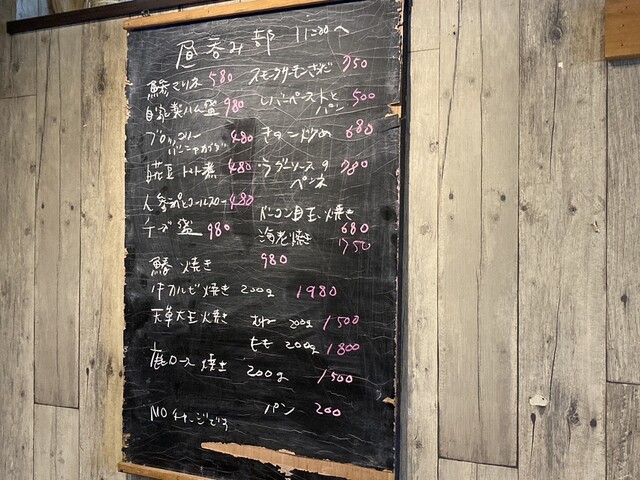 昼呑み部 11:00〜
鯵マリネ 580
スモークサーモンサラダ 750
自家製ハム盛 980
レバーペーストと
パン 500
ブロッコリー
バーニャカウダ 480
きのこソテー 680
白花豆トマト煮 480
ラグーソースの
ペンネ 780
人参ラペとコールスロー 480
チーズ盛 980
ベーコン目玉焼き
680
海老焼き 750
鰆焼き 980
牛カルビ焼き 200g 1980
天草大王焼き むね 200g 1500
もも 200g 1800
鹿ロース焼き 200g 1500
パン 200
NOチャージです